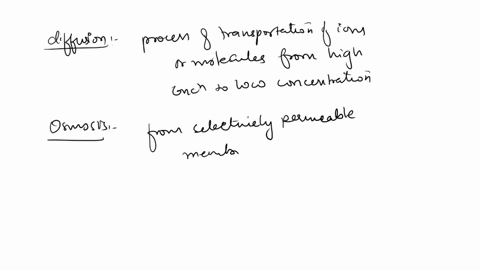 diffusion:- process of transportation of ions
or molecules from high
concn to low concentration
Osmosis:- from selectively permeable
membr